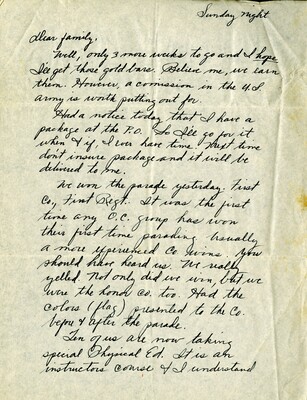 Sunday night
Dear family,
Well, only 3 more weeks to go and I hope
I'll get those gold bars. Believe me, we earn
them. However, a comission in the U.S.
Army is worth putting out for.
Had a notice today that I have a
package at the P.O. So I'll go for it
when & if, I ever have time. Next time
don't insure package and it will be
delivered to me.
We won the parade yesterday. First
Co., First Regt. It was the first
time any O.C. group has won
their first time parading. Usually
a more experienced Co wins. You
should have heard us. We really
yelled. Not only did we win, but we
were the honor co. too. Had the
colors (flag) presented to the Co.
before & after the parade.
Ten of us are now taking
special Physical Ed. It is an
instructors course & I understand